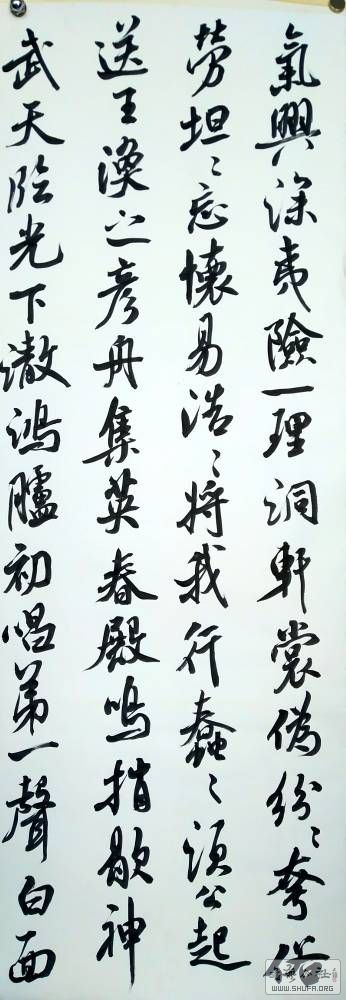 氣興深夷險一理洞軒裳偽紛〻夸俗
勞坦〻忘懷易浩〻將我行蠢〻須公起
送王渙之彥舟集英春殿鳴捎歇神
武天臨光下澈鴻臚初唱第一聲白面
WWW.SHUFA.ORG